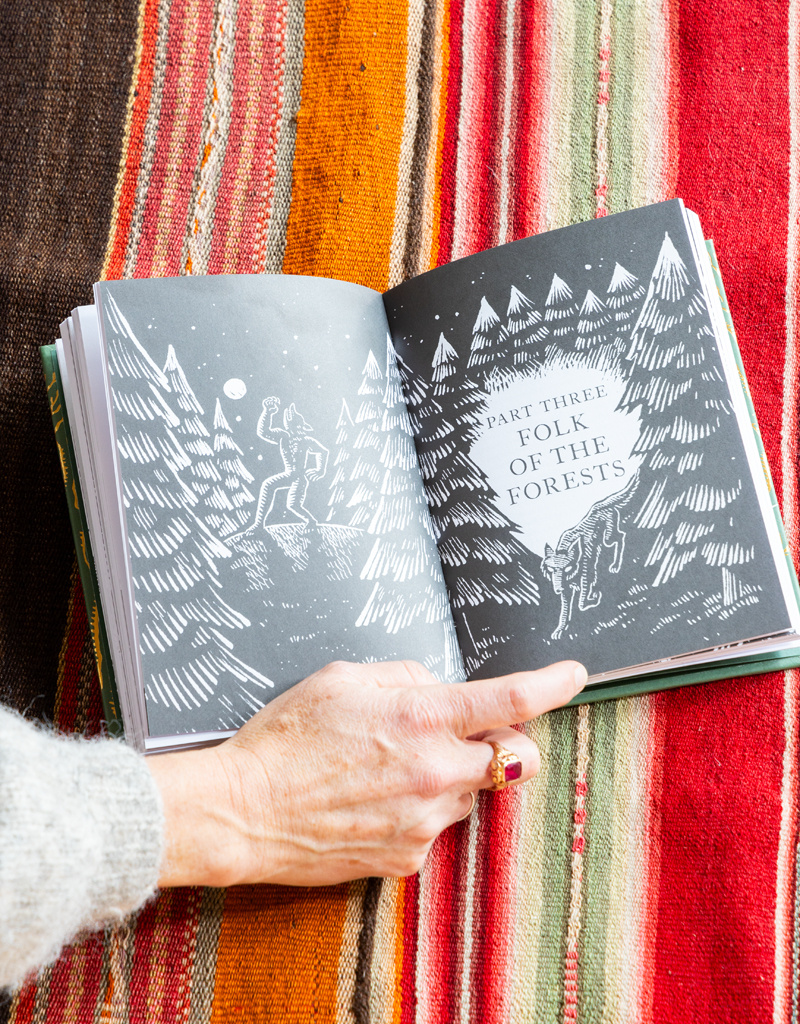 PART THREE
FOLK
OF THE
FORESTS